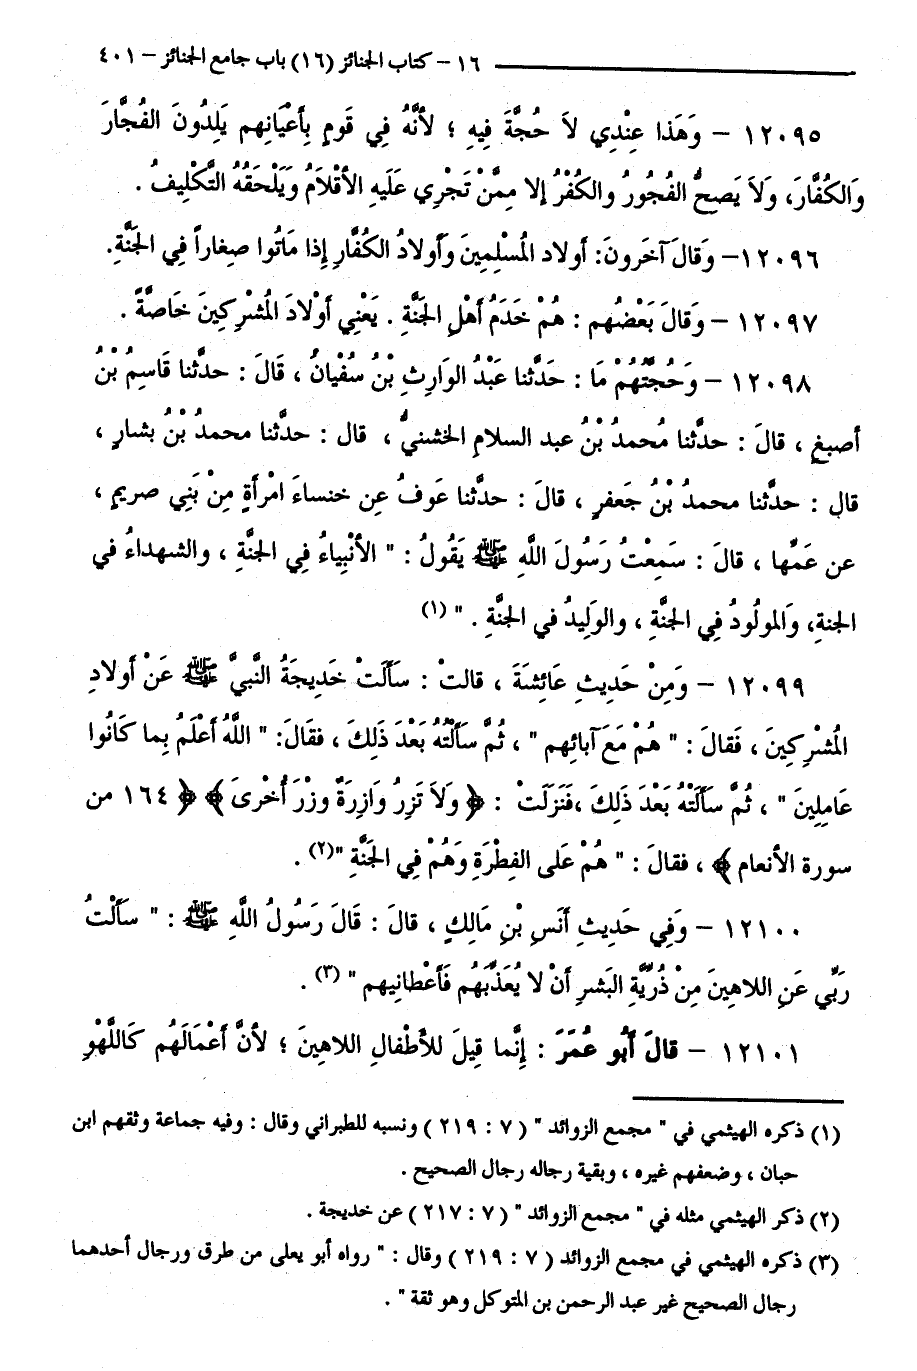 ١٦ – كتاب الجنائز (١٦) باب جامع الجنائز – ٤٠١
١٢٠٩٥ – وَهَذا عِنْدِي لاَ حُجَّةَ فِيهِ ؛ لأنَّهُ فِي قَومٍ بِأَعْيَانِهم يَلِدُونَ الفُجَّارَ
وَالكُفَّارَ، وَلاَ يَصحُّ الفُجُورُ والكُفْرُ إلا مِمَّنْ تَجْرِي عَلَيهِ الأقْلاَمُ وَيَلْحَقُهُ التَّكْلِيفُ .
١٢٠٩٦– وَقالَ آخَرونَ: أولاد المُسْلِمِينَ وَأَولادُ الكُفَّارِ إذا مَاتُوا صغاراً فِي الجَنَّةِ.
١٢٠٩٧ – وَقالَ بَعْضُهم : هُمْ خَدَمُ أهْلِ الجَنَّةِ . يَعْنِي أوْلادَ المُشْرِكِينَ خَاصَّةً .
١٢٠٩٨ – وَحُجَّتُهُمْ مَا : حَدَّثنا عَبْدُ الوَارِثِ بْنُ سُفْيانُ ، قَالَ : حدَّثنا قَاسِمُ بْنُ
أصبغٍ ، قالَ : حدَّثنا مُحمدُ بْنُ عبد السلام الخشنيُّ ، قال : حدَّثنا محمدُ بْنُ بشارٍ ،
قال : حدَّثنا محمدُ بْنُ جَعفرٍ ، قالَ : حدَّثنا عَوفُ عن خنساءَ امْرأَةٍ مِنْ بَنِي صريمٍ ،
عن عَمِّها ، قالَ : سَمِعْتُ رَسُولَ اللَّهِ ﷺ يَقُولُ : " الأنْبِياءُ فِي الجَنَّةِ ، والشهداءُ في
الجنةِ، وَالمولُودُ فِي الجَنَّةِ ، والوَلِيدُ في الجَنَّةِ . " (١)
١٢٠٩٩ – وَمِنْ حَدِيثِ عَائِشَةَ ، قالتْ : سَأَلَتْ خَدِيجَةُ النَّبيَّ ﷺ عَنْ أولادِ
المُشْرِكِينَ ، فَقالَ : " هُمْ مَعَ آبائِهم " ، ثُمَّ سَأَلَتْهُ بَعْدَ ذَلِكَ ، فقَالَ: " اللَّهُ أعْلَمُ بِما كَانُوا
عَامِلِينَ " ، ثُمَّ سَأَلَتْهُ بَعْدَ ذَلِكَ ،فَنَزَلَتْ : ﴿ وَلاَ تَزِرُ وَازِرَةٌ وِزْرَ أُخْرىَ ﴾ ﴿ ١٦٤ من
سورة الأنعام ﴾ ، فقالَ : " هُمْ عَلى الفِطْرَةِ وَهُمْ فِي الجَنَّةِ "(٢) .
١٢١٠٠ – وَفِي حَدِيثِ أَنَسِ بْنِ مَالِكٍ ، قالَ : قَالَ رَسُولُ اللَّهِ ﷺ : " سَأَلْتُ
رَبِّي عَنِ اللاهِينَ مِنْ ذُرِّيَّةِ البَشرِ أَنْ لا يُعَذِّبَهُم فَأَعْطانِيهم " (٣) .
١٢١٠١ – قالَ أبُو عُمَرَ : إنَّما قِيلَ للأطْفالِ اللاهِينَ ؛ لأنَّ أعْمَالَهُم كَاللَّهْوِ
(١) ذكره الهيثمي في " مجمع الزوائد " (٧ : ٢١٩ ) ونسبه للطبراني وقال : وفيه جماعة وثقهم ابن
حبان ، وضعفهم غيره ، وبقية رجاله رجال الصحيح .
(٢) ذكر الهيثمي مثله في " مجمع الزوائد " (٧ : ٢١٧ ) عن خديجة .
(٣) ذكره الهيثمي في مجمع الزوائد ( ٧ : ٢١٩ ) وقال : " رواه أبو يعلى من طرق ورجال أحدهما
رجال الصحيح غير عبد الرحمن بن المتوكل وهو ثقة " .